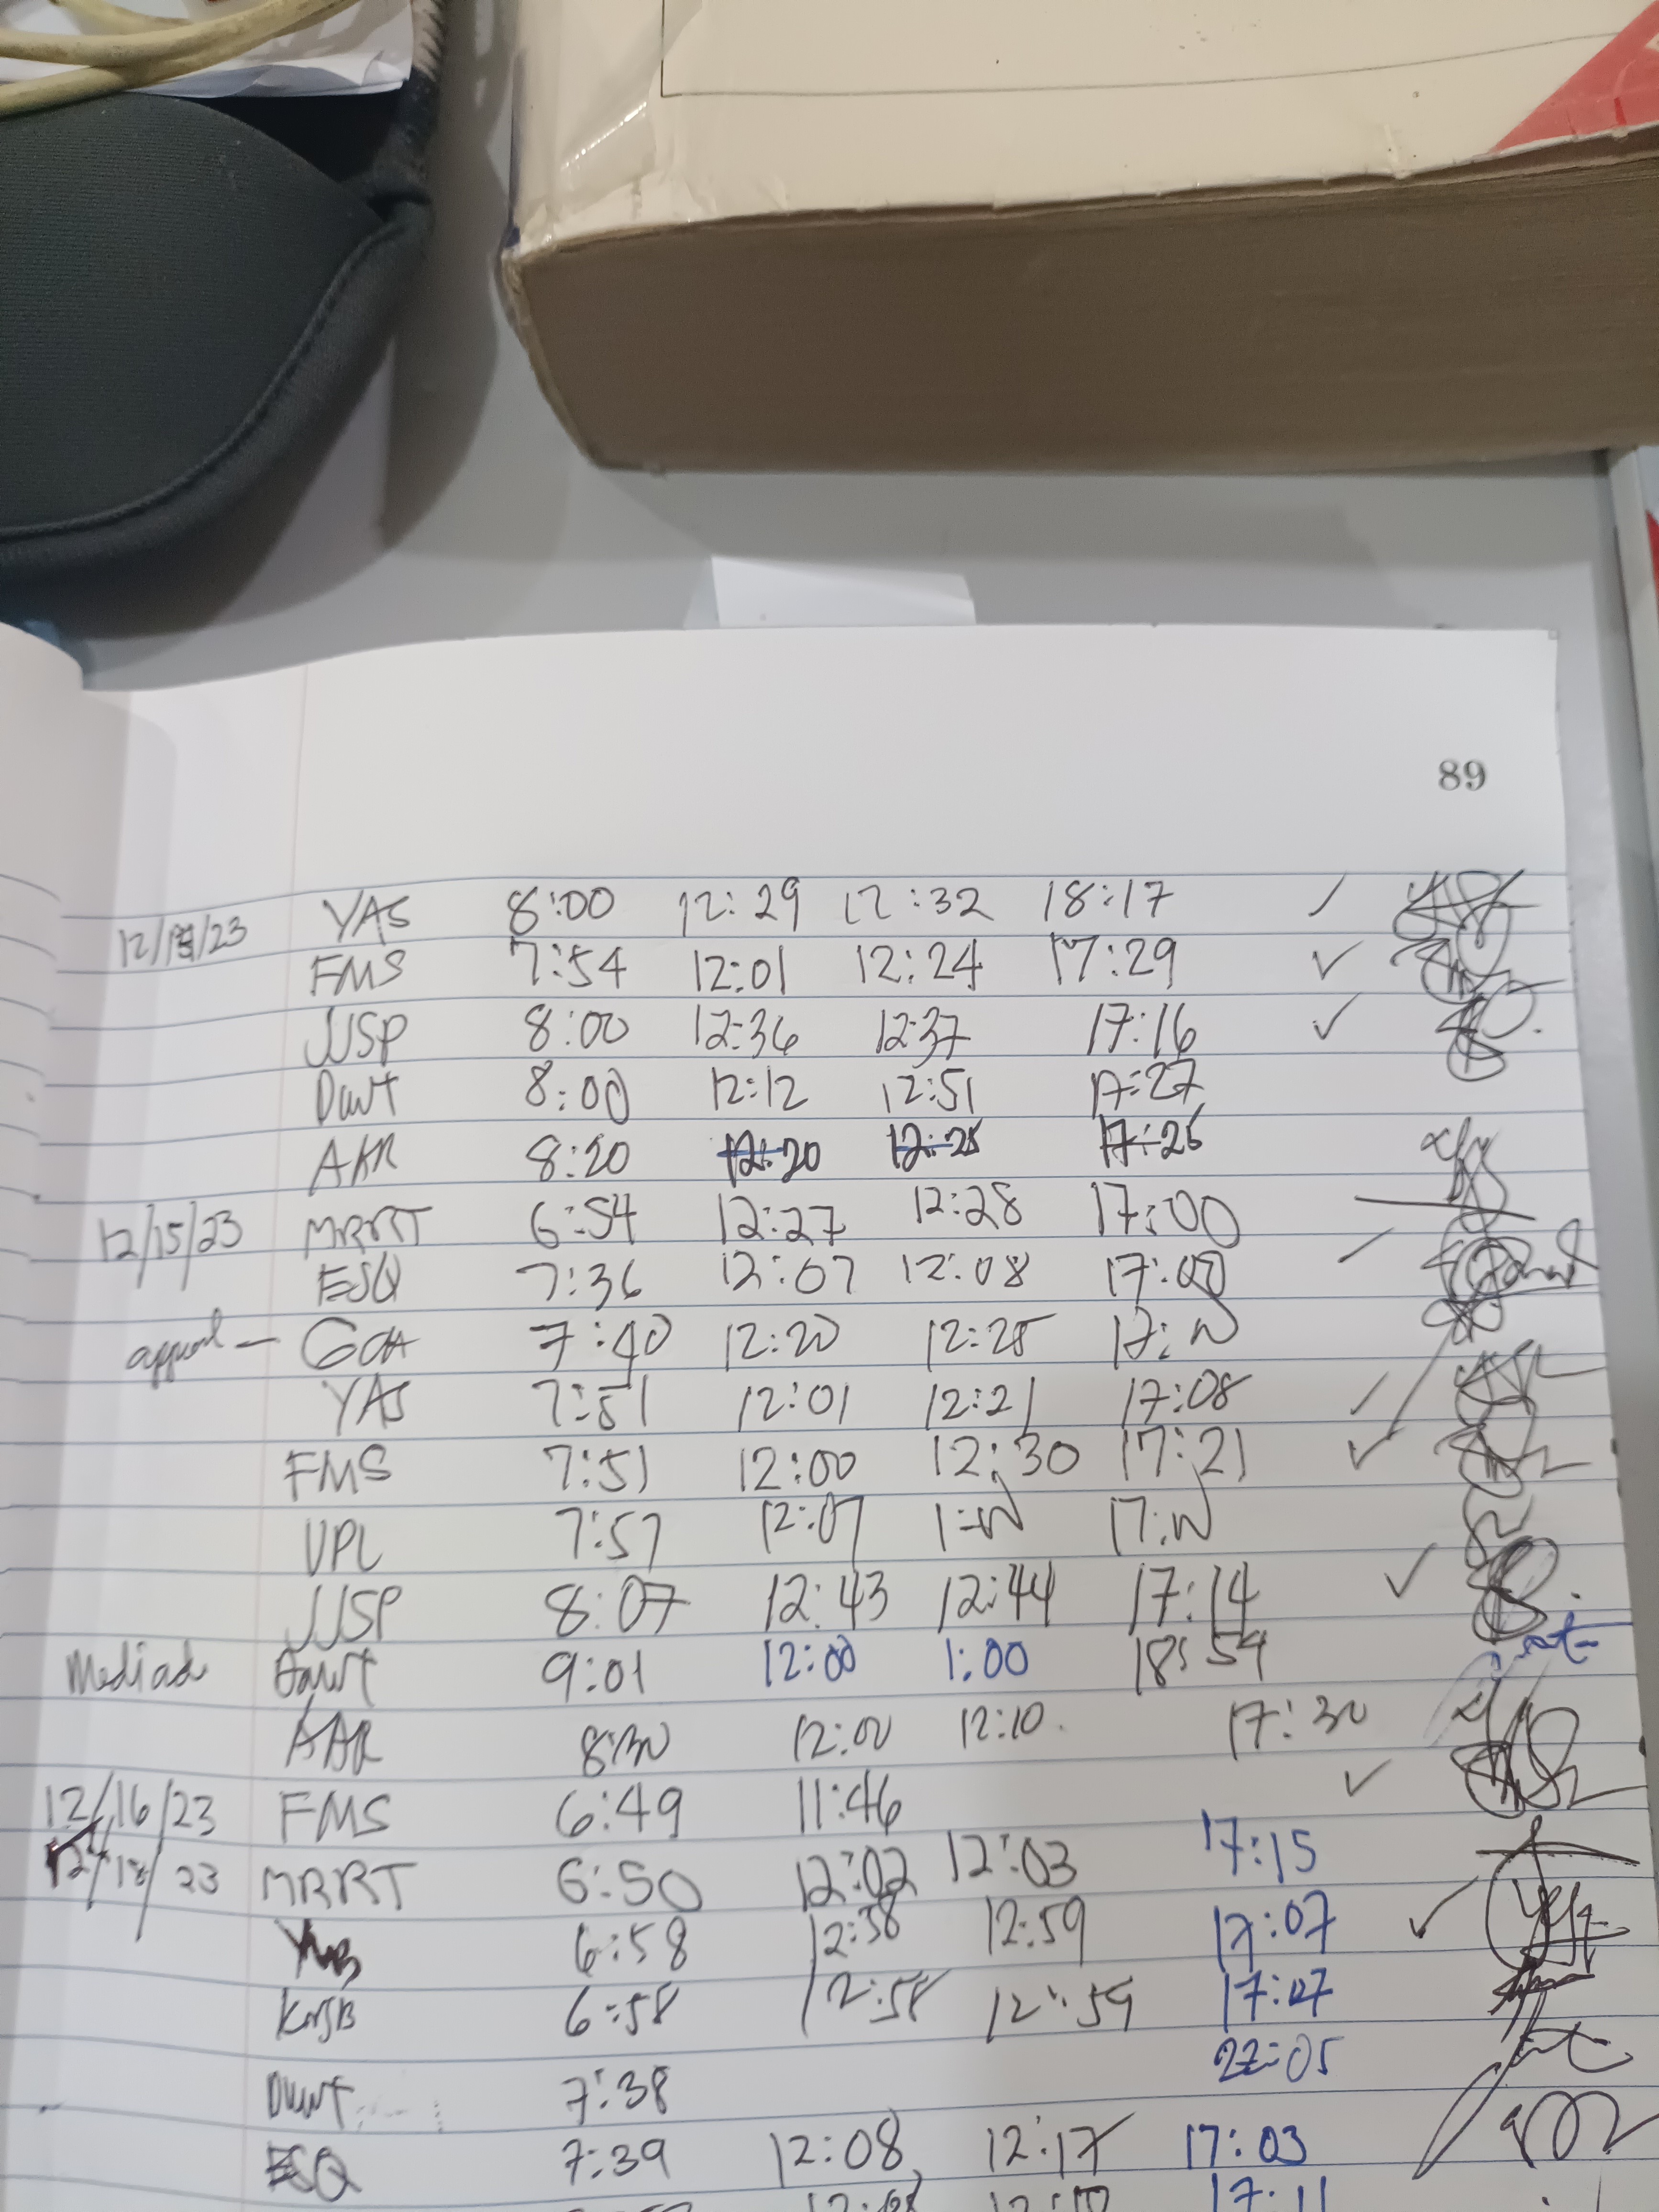 89
YAS 8:00 12:29 12:32 18:17
12/ /23
FMS 7:54 12:01 12:24 17:29
JJSP 8:00 12:36 12:37 17:16
8:00 12:12 12:51 17:27
8:20 12:20 12:25 17:25
12/15/23 MRRT 6:54 12:27 12:28 17:00
ESQ 7:36 12:07 12:08 17:00
7:40 12:20 12:25
YAS 7:51 12:01 12:21 17:08
FMS 7:51 12:00 12:30 17:21
VPL 7:57 12:07
JJSP 8:07 12:43 12:44 17:14
9:01 12:00 1:00 18:54
8:30 12:00 12:10 17:30
12/16/23 FMS 6:49 11:46
12/18/23 MRRT 6:50 12:02 12:03 17:15
6:58 12:58 12:59 17:07
KMJB 6:58 12:58 12:59 17:07
7:38 22:05
ESQ 7:39 12:08 12:17 17:03
17:11